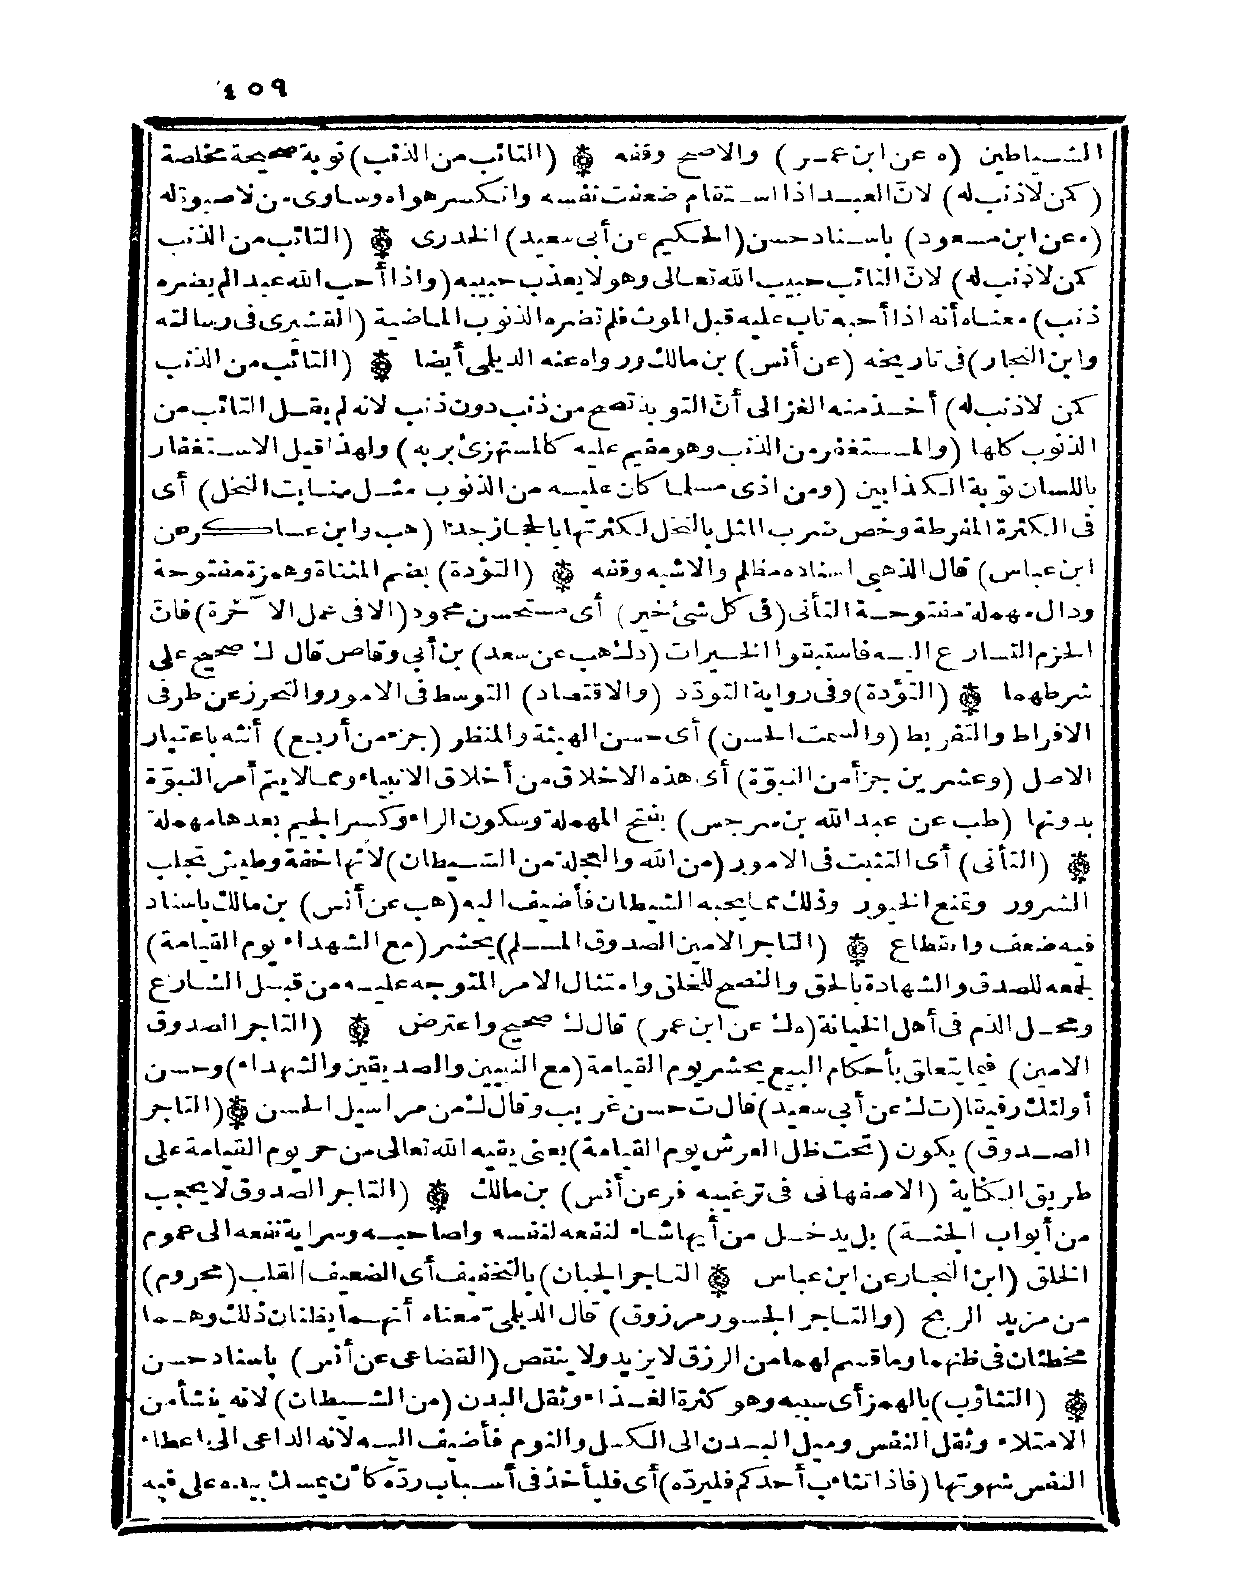 ٤٥٩
الشياطين (ه عن ابن عمر) والاصح وقفه ۞ (التائب من الذنب) توبة صحيحة مخلصة
(كمن لا ذنب له) لانّ العبد اذا استقام ضعفت نفسه وانكسر هواه وساوى من لا صبوة له
(ه عن ابن مسعود) باسناد حسن (الحكيم عن أبى سعيد) الخدرى ۞ (التائب من الذنب
كمن لا ذنب له) لانّ التائب حبيب الله تعالى وهو لا يعذب حبيبه (واذا أحب الله عبدا لم يضره
ذنب) معناه أنه اذا أحبه تاب عليه قبل الموت فلم تضره الذنوب الماضية (القشيرى فى رسالته
وابن النجار) فى تاريخه (عن أنس) بن مالك ورواه عنه الديلمى أيضا ۞ (التائب من الذنب
كمن لا ذنب له) أخذ منه الغزالى أنّ التوبة تصح من ذنب دون ذنب لانه لم يقل التائب من
الذنوب كلها (والمستغفر من الذنب وهو مقيم عليه كالمستهزئ بربه) ولهذا قيل الاستغفار
باللسان توبة الكذابين (ومن اذى مسلما كان عليه من الذنوب مثل منابت النخل) أى
فى الكثرة المفرطة وخص ضرب المثل بالنخل لكثرتها بالحجاز جدّا (هب وابن عساكر عن
ابن عباس) قال الذهبى اسناده مظلم والاشبه وقفه ۞ (التؤدة) بضم المثناة وهمزة مفتوحة
ودال مهملة مفتوحة التأنى (فى كل شئ خير) أى مستحسن محمود (الا فى عمل الآخرة) فانّ
الحزم التسارع اليه فاستبقوا الخيرات (د ك هب عن سعد) بن أبى وقاص قال ك صحيح على
شرطهما ۞ (التؤدة) وفى رواية التودّد (والاقتصاد) التوسط فى الامور والتحرز عن طرفى
الافراط والتفريط (والسمت الحسن) أى حسن الهيئة والمنظر (جزء من أربع) أنثه باعتبار
الاصل (وعشرين جزأ من النبوّة) أى هذه الاخلاق من أخلاق الانبياء ومما لا يتم أمر النبوّة
بدونها (طب عن عبد الله بن سرجس) بفتح المهملة وسكون الراء وكسر الجيم بعدها مهملة
۞ (التأنى) أى التثبت فى الامور (من الله والعجلة من الشيطان) لانها خفة وطيش تجلب
الشرور وتمنع الخيور وذلك مما يحبه الشيطان فأضيف اليه (هب عن أنس) بن مالك باسناد
فيه ضعف وانقطاع ۞ (التاجر الامين الصدوق المسلم) يحشر (مع الشهداء يوم القيامة)
لجمعه للصدق والشهادة بالحق والنصح للخلق وامتثال الامر المتوجه عليه من قبل الشارع
ومحل الذم فى أهل الخيانة (ه ك عن ابن عمر) قال ك صحيح واعترض ۞ (التاجر الصدوق
الامين) فيما يتعلق بأحكام البيع يحشر يوم القيامة (مع النبيين والصديقين والشهداء) وحسن
أولئك رفيقا (ت ك عن أبى سعيد) قال ت حسن غريب وقال ك من مراسيل الحسن ۞ (التاجر
الصدوق) يكون (تحت ظل العرش يوم القيامة) يعنى يقيه الله تعالى من حر يوم القيامة على
طريق الكناية (الاصفهانى فى ترغيبه فر عن أنس) بن مالك ۞ (التاجر الصدوق لا يحجب
من أبواب الجنة) بل يدخل من أيها شاء لنفعه لنفسه ولصاحبه وسراية نفعه الى عموم
الخلق (ابن النجار عن ابن عباس ۞ التاجر الجبان) بالتخفيف أى الضعيف القلب (محروم)
من مزيد الربح (والتاجر الجسور مرزوق) قال الديلمى معناه أنهما يظنان ذلك وهما
مخطئان فى ظنهما وما قسم لهما من الرزق لا يزيد ولا ينقص (القضاعى عن أنس) باسناد حسن
۞ (التثاؤب) بالهمز أى سببه وهو كثرة الغذاء وثقل البدن (من الشيطان) لانه ينشأ من
الامتلاء وثقل النفس وميل البدن الى الكسل والنوم فأضيف اليه لانه الداعى الى اعطاء
النفس شهوتها (فاذا تثاءب أحدكم فليردّه) أى فليأخذ فى أسباب ردّه كأن يمسك بيده على فيه